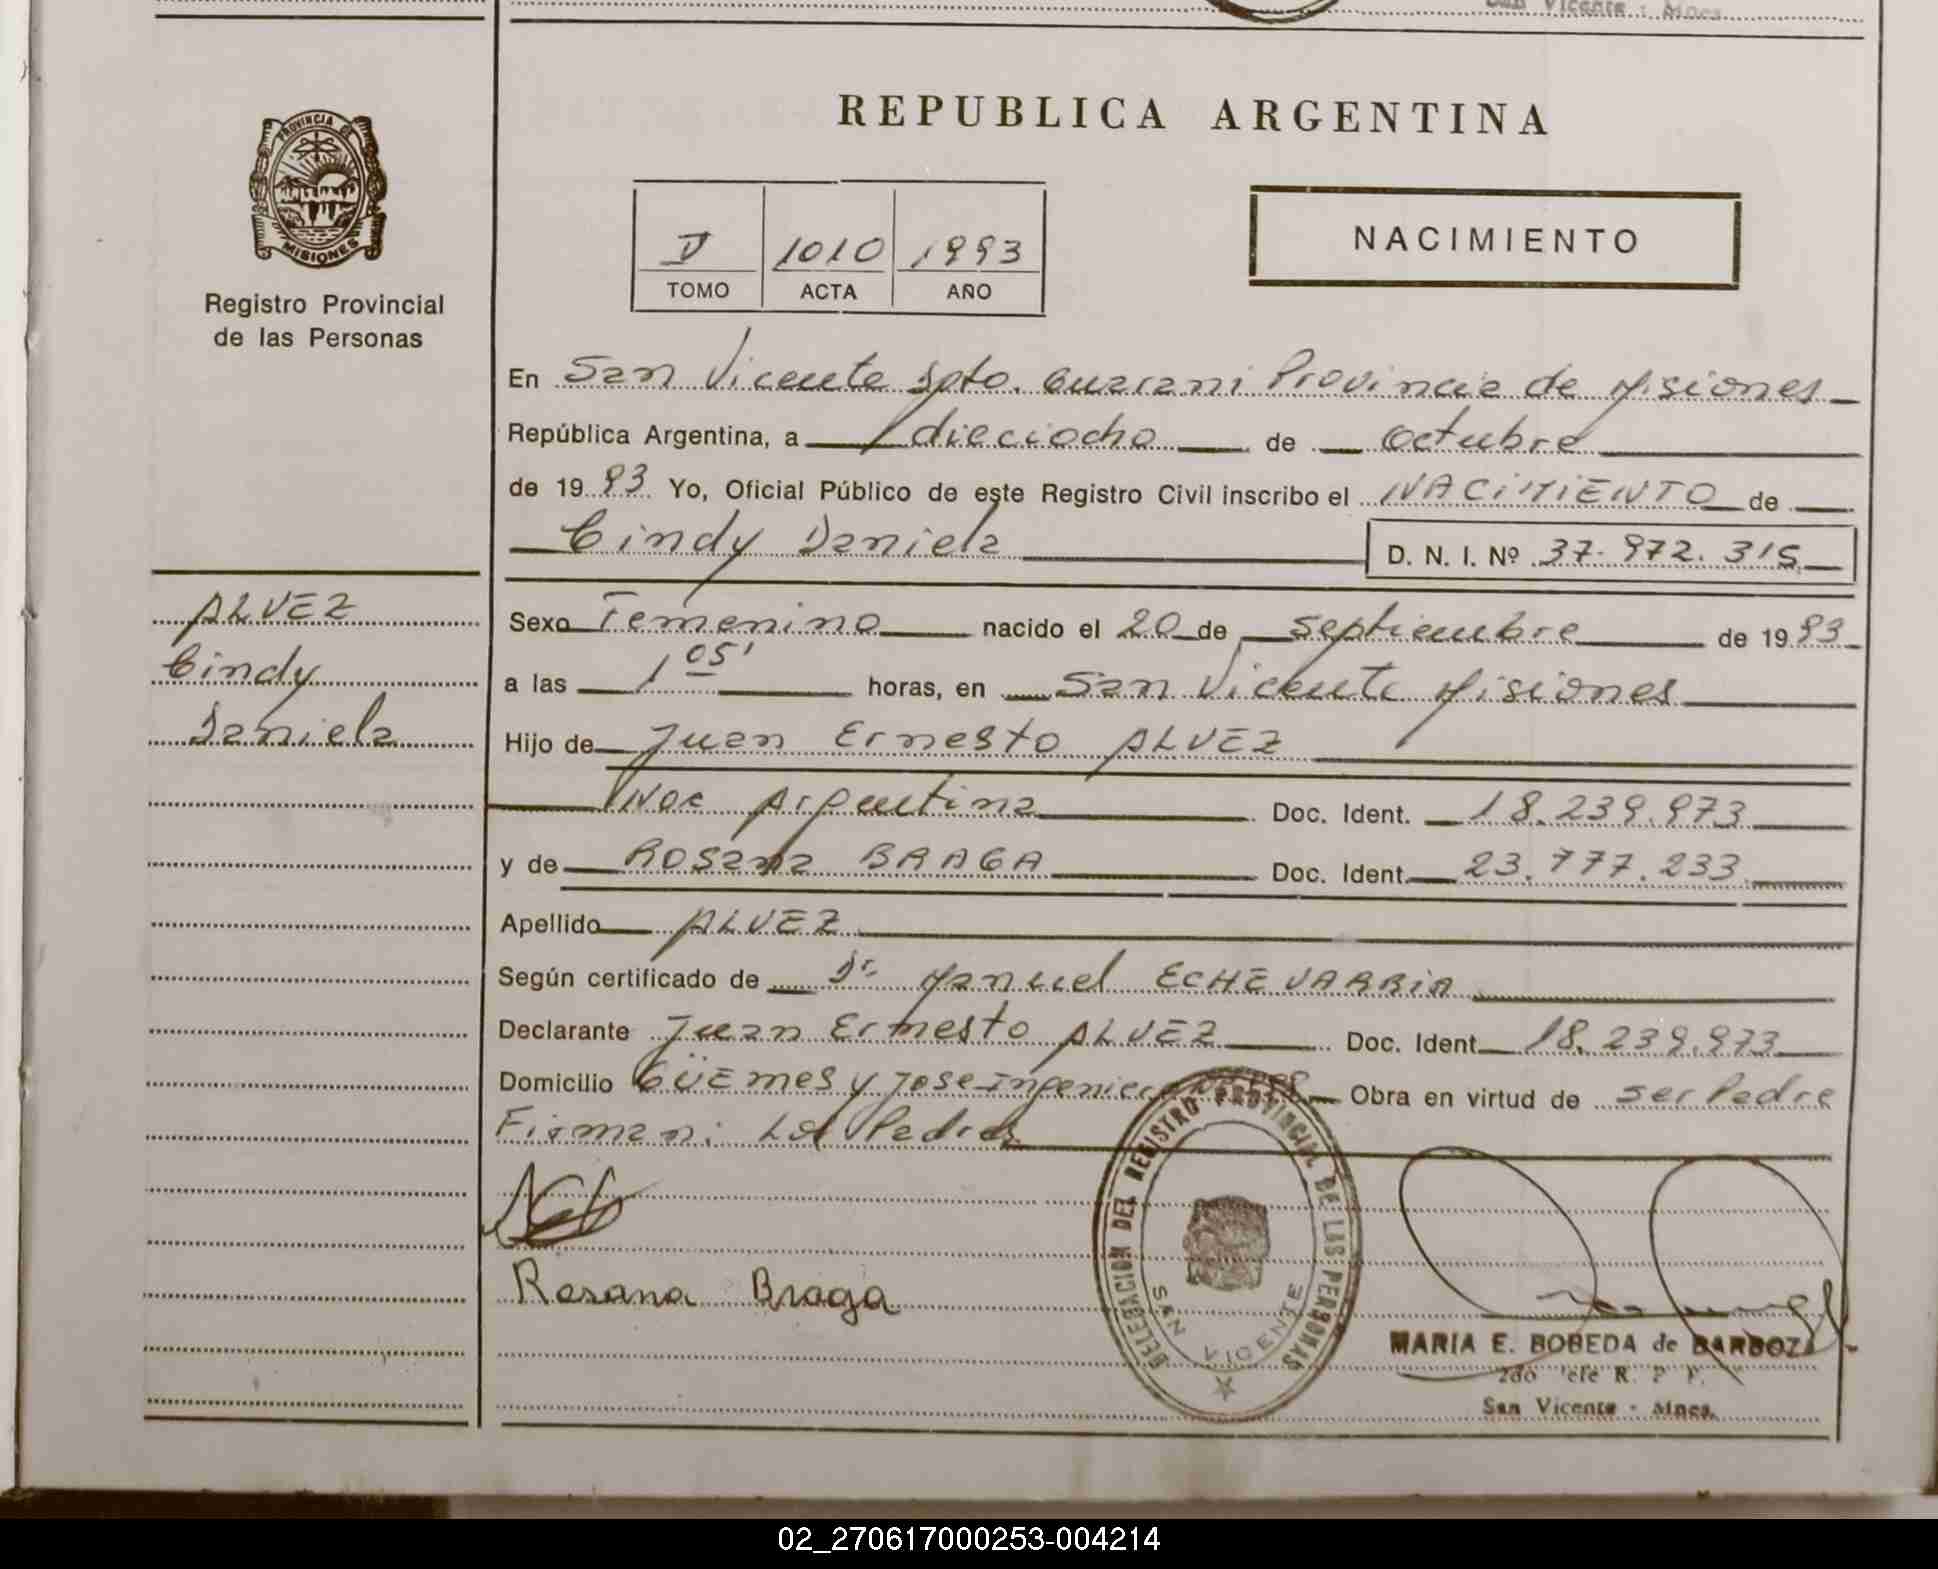 San Vicente - Mnes.
REPUBLICA ARGENTINA
PROVINCIA DE
MISIONES
Registro Provincial
de las Personas
V 1010 1993
TOMO ACTA AÑO
NACIMIENTO
En San Vicente Dpto. Guarani Provincia de Misiones
República Argentina, a dieciocho de octubre
de 1993 Yo, Oficial Público de este Registro Civil inscribo el NACIMIENTO de
Cindy Daniela D. N. I. Nº 37.972.315
ALVEZ
Cindy
Daniela
Sexo Femenino nacido el 20 de septiembre de 1993
a las 1 05' horas, en San Vicente Misiones
Hijo de Juan Ernesto ALVEZ
Nac Argentina Doc. Ident. 18.239.973
y de ROSANA BRAGA Doc. Ident. 23.777.233
Apellido ALVEZ
Según certificado de Dr Manuel ECHEVARRIA
Declarante Juan Ernesto ALVEZ Doc. Ident. 18.239.973
Domicilio GÜEMES y Jose Ingenieros Obra en virtud de ser Padre
Firman: Los Padres
Rosana Braga
DELEGACION DEL REGISTRO PROVINCIAL DE LAS PERSONAS
SAN VICENTE
MARIA E. BOBEDA de BARBOZA
2do Jefe R. P. P.
San Vicente - Mnes.
02_270617000253-004214